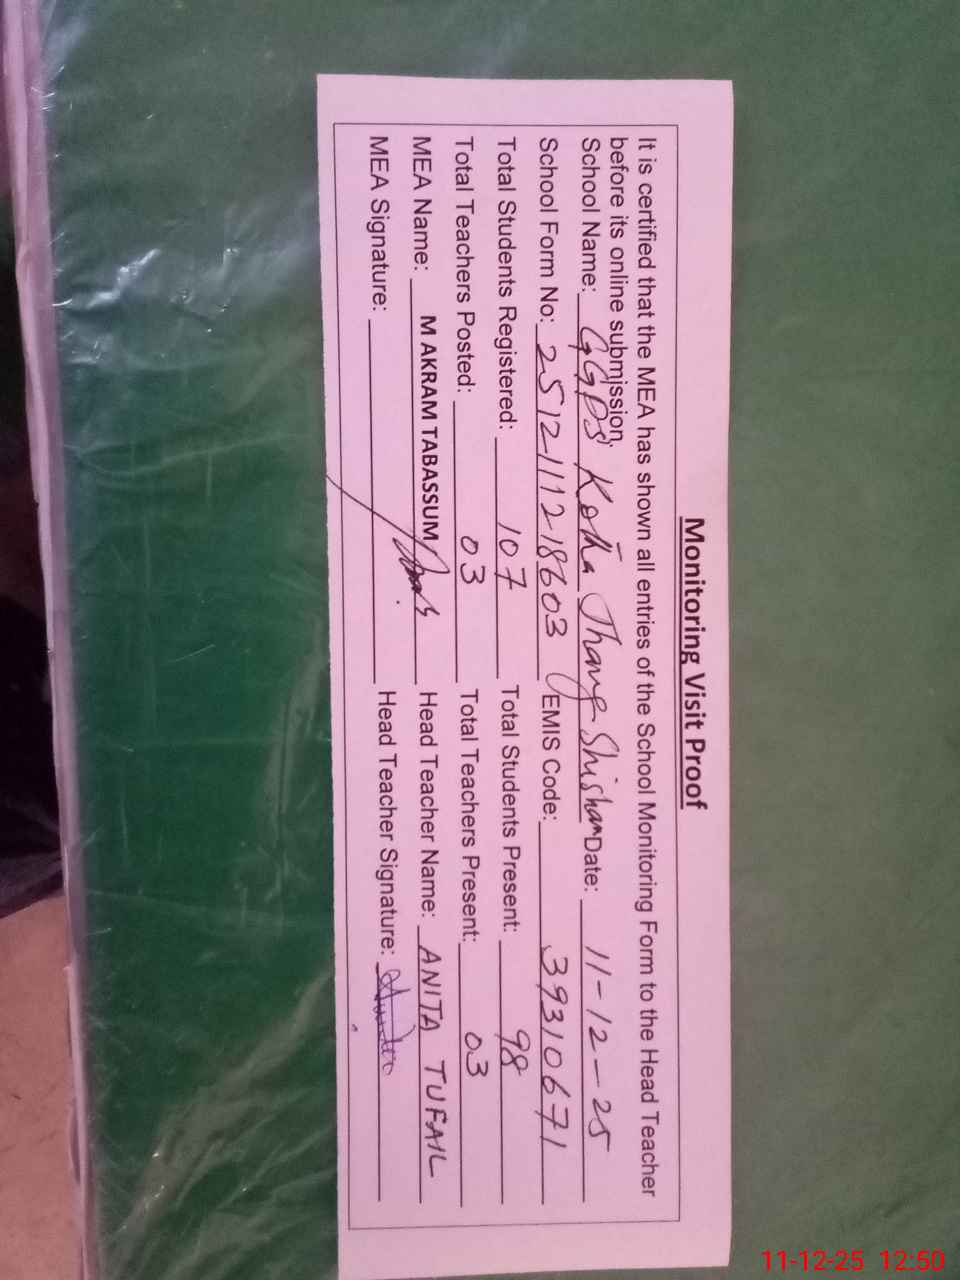 Monitoring Visit Proof
It is certified that the MEA has shown all entries of the School Monitoring Form to the Head Teacher
before its online submission.
School Name: GGPS Kotha Thang Shisham Date: 11-12-25
School Form No: 2512111218603 EMIS Code: 39310671
Total Students Registered: 107 Total Students Present: 98
Total Teachers Posted: 03 Total Teachers Present: 03
MEA Name: M AKRAM TABASSUM Head Teacher Name: ANITA TUFAIL
MEA Signature: Head Teacher Signature:
11-12-25 12:50